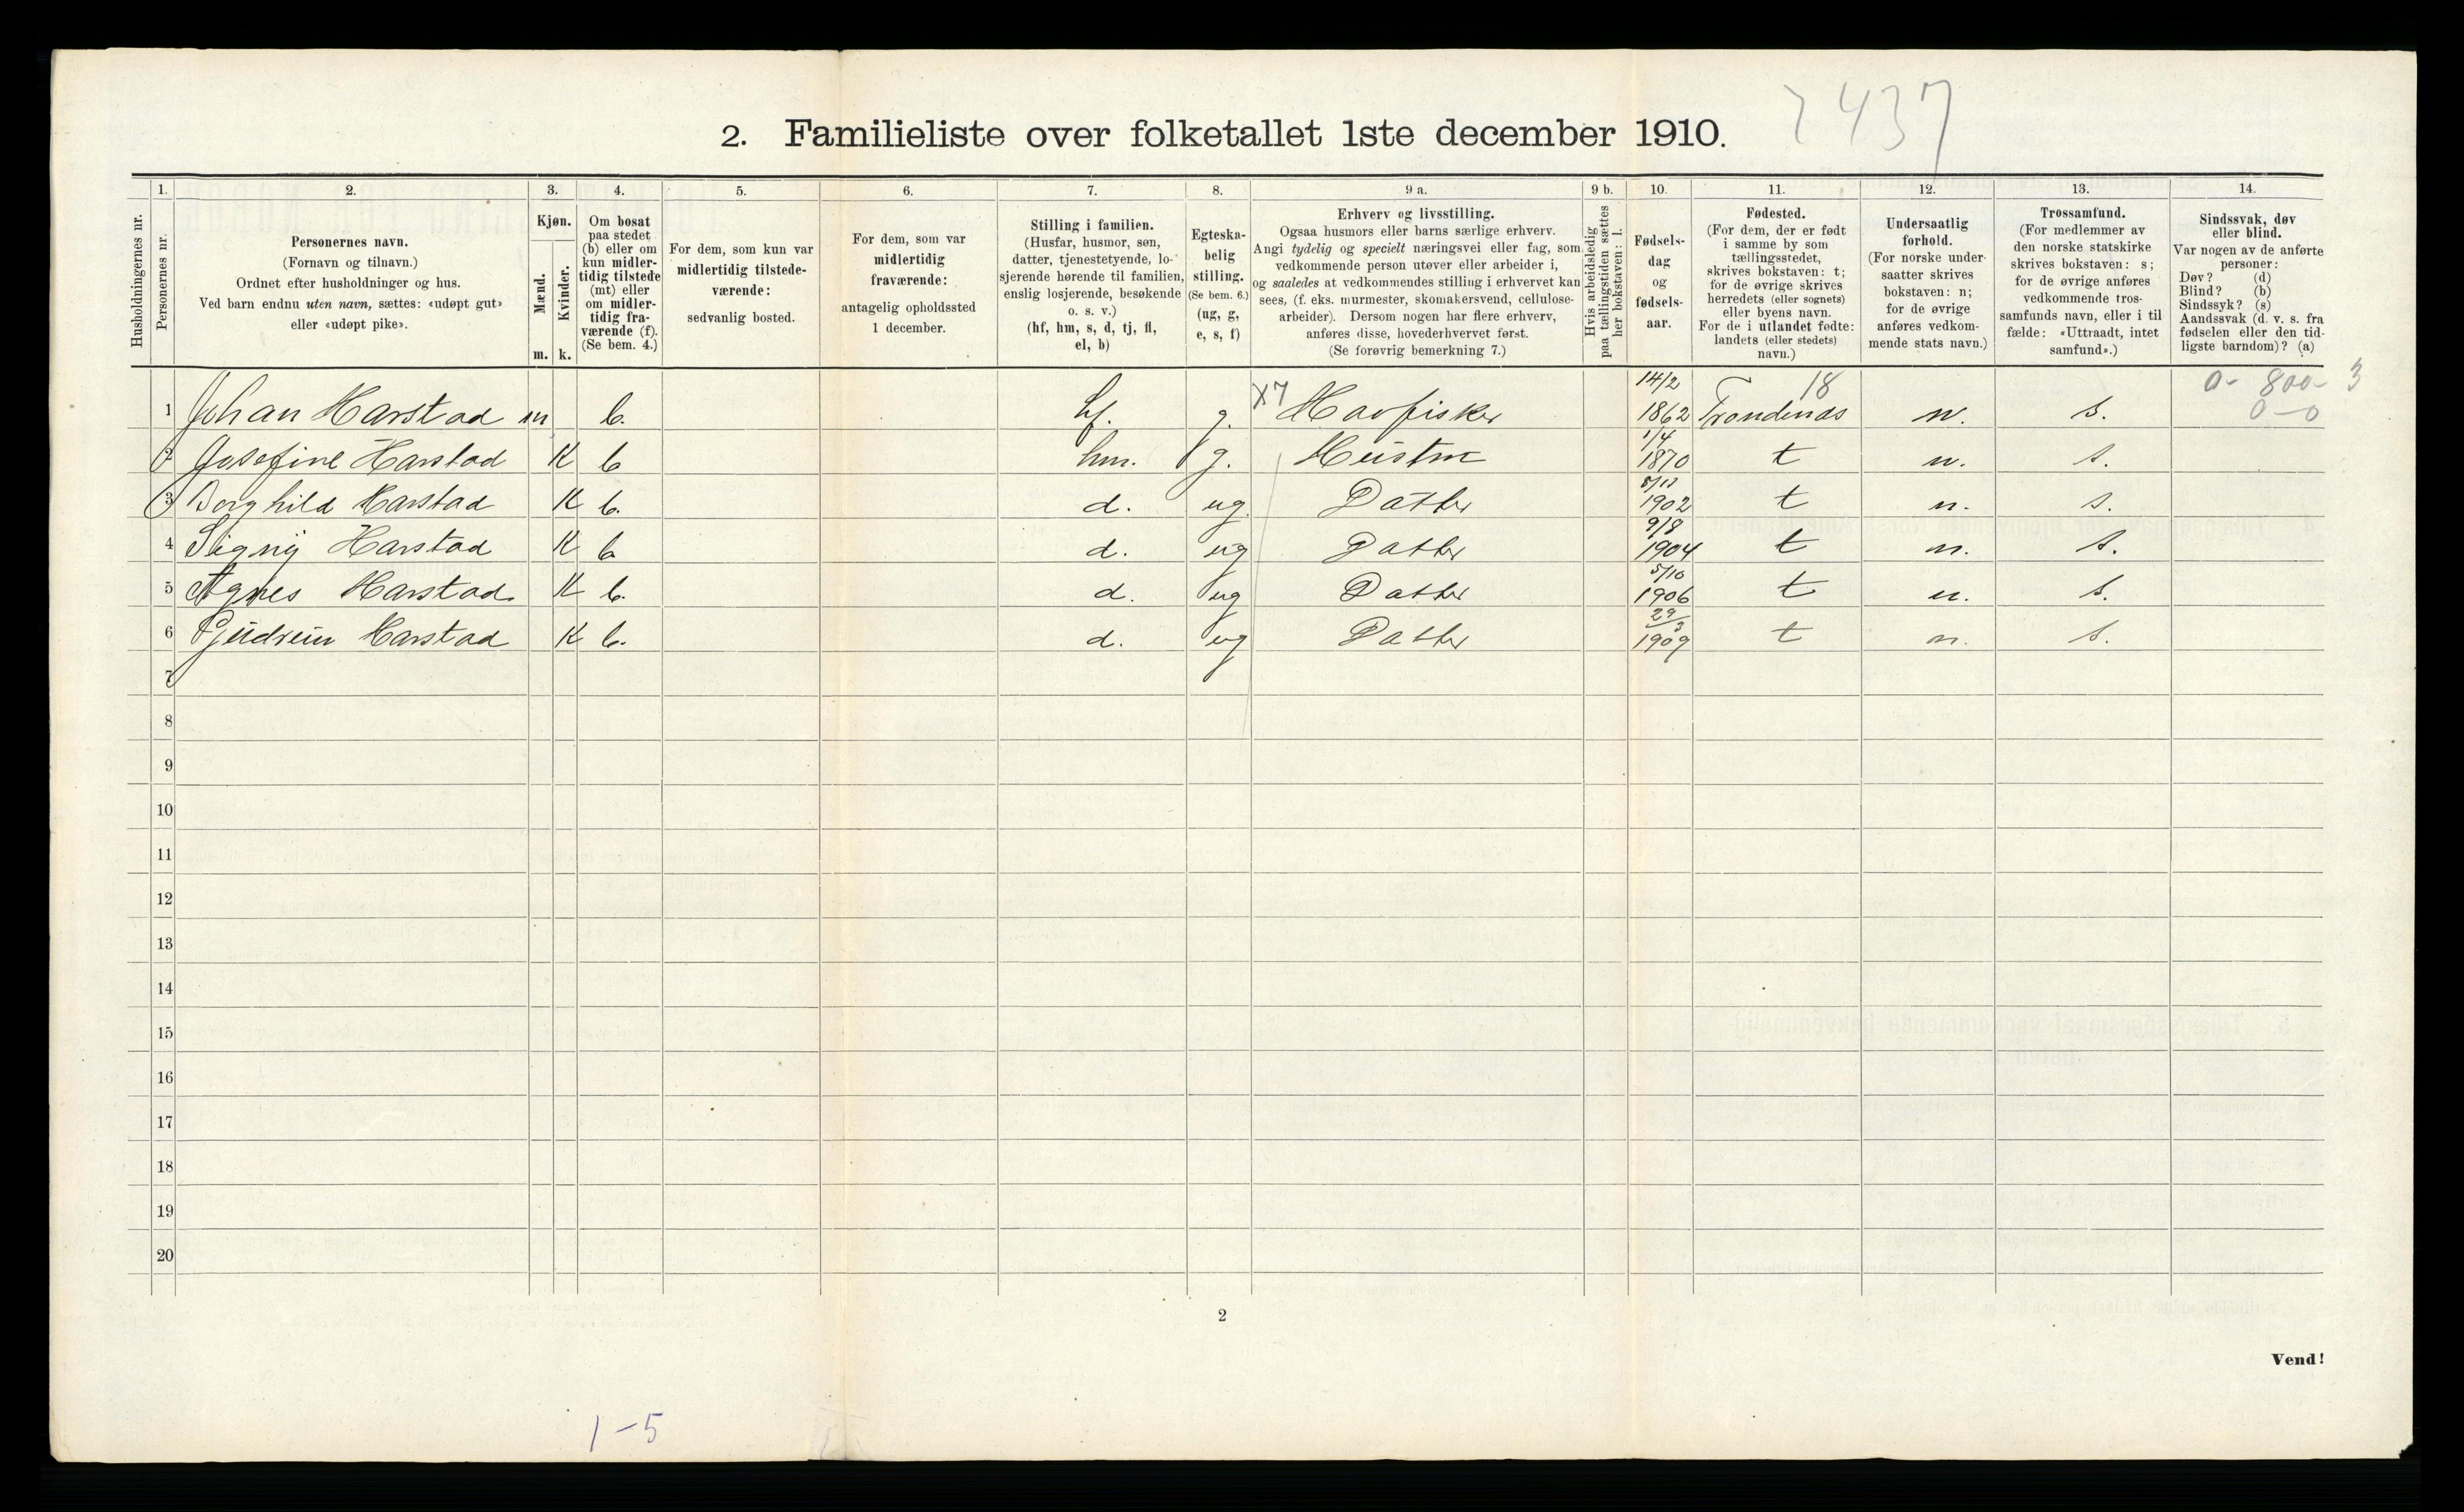 7437
2. Familieliste over folketallet 1ste december 1910.
Husholdningernes nr.
1.
Personernes nr.
2.
Personernes navn.
(Fornavn og tilnavn.)
Ordnet efter husholdninger og hus.
Ved barn endnu uten navn, sættes: «udøpt gut»
eller «udøpt pike».
3.
Kjøn.
Mænd.
m.
Kvinder.
k.
4.
Om bosat
paa stedet
(b) eller om
kun midler-
tidig tilstede
(mt) eller
om midler-
tidig fra-
værende (f).
(Se bem. 4.)
5.
For dem, som kun var
midlertidig tilstede-
værende:
sedvanlig bosted.
6.
For dem, som var
midlertidig
fraværende:
antagelig opholdssted
1 december.
7.
Stilling i familien.
(Husfar, husmor, søn,
datter, tjenestetyende, lo-
sjerende hørende til familien,
enslig losjerende, besøkende
o. s. v.)
(hf, hm, s, d, tj, fl,
el, b)
8.
Egteska-
belig
stilling.
(Se bem. 6.)
(ug, g,
e, s, f)
9 a.
Erhverv og livsstilling.
Ogsaa husmors eller barns særlige erhverv.
Angi tydelig og specielt næringsvei eller fag, som
vedkommende person utøver eller arbeider i,
og saaledes at vedkommendes stilling i erhvervet kan
sees, (f. eks. murmester, skomakersvend, cellulose-
arbeider). Dersom nogen har flere erhverv,
anføres disse, hovederhvervet først.
(Se forøvrig bemerkning 7.)
9 b.
Hvis arbeidsledig
paa tællingstiden sættes
her bokstaven: l.
10.
Fødsels-
dag
og
fødsels-
aar.
11.
Fødested.
(For dem, der er født
i samme by som
tællingsstedet,
skrives bokstaven: t;
for de øvrige skrives
herredets (eller sognets)
eller byens navn.
For de i utlandet fødte:
landets (eller stedets)
navn.)
12.
Undersaatlig
forhold.
(For norske under-
saatter skrives
bokstaven: n;
for de øvrige
anføres vedkom-
mende stats navn.)
13.
Trossamfund.
(For medlemmer av
den norske statskirke
skrives bokstaven: s;
for de øvrige anføres
vedkommende tros-
samfunds navn, eller i til
fælde: «Uttraadt, intet
samfund».)
14.
Sindssvak, døv
eller blind.
Var nogen av de anførte
personer:
Døv? (d)
Blind? (b)
Sindssyk? (s)
Aandssvak (d. v. s. fra
fødselen eller den tid-
ligste barndom)? (a)
X7 14/2 18 0- 800- 3
1 Johan Harstad m b. hf. g. Havfisker 1862 Trondenæs n. s. 0-0
1/4
2 Josefine Harstad K b hm. g. Hustru 1870 t n. s.
3 Borghild Harstad K b. d. ug. Datter 1902 t n. s.
9/8
4 Signy Harstad K b d. ug Datter 1904 t n. s.
5/10
5 Agnes Harstad K b. d. ug Datter 1906 t n. s.
29/3
6 Gudrun Harstad K b. d. ug Datter 1909 t n. s.
7
8
9
10
11
12
13
14
15
16
17
18
19
20
2
Vend!
1-5